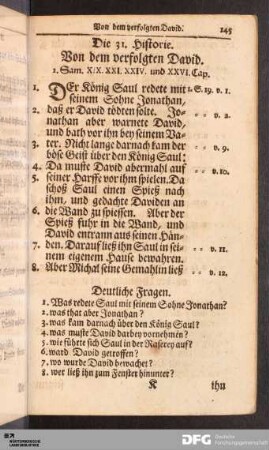 Von dem verfolgten David. 145
Die 31. Historie.
Von dem verfolgten David.
1. Sam. XIX. XXI. XXIV. und XXVI. Cap.
1. DEr König Saul redete mit 1. S. 19. v. 1.
seinem Sohne Jonathan,
2. daß er David tödten solte. Jo- = = v. 2.
nathan aber warnete David,
und bath vor ihn bey seinem Va-
3. ter. Nicht lange darnach kam der = = v. 9.
böse Geist über den König Saul:
4. Da muste David abermahl auf = = v. 10.
5. seiner Harffe vor ihm spielen. Da
schoß Saul einen Spieß nach
ihm, und gedachte Daviden an
6. die Wand zu spiessen. Aber der
Spieß fuhr in die Wand, und
David entrann aus seinen Hän-
7. den. Darauf ließ ihn Saul in sei- = = v. 11.
nem eigenem Hause bewahren.
8. Aber Michal seine Gemahlin ließ = = v. 12.
Deutliche Fragen.
1. Was redete Saul mit seinem Sohne Jonathan?
2. was that aber Jonathan?
3. was kam darnach über den König Saul?
4. was muste David darbey vornehmen?
5. wie führte sich Saul in der Raserey auf?
6. ward David getroffen?
7. wo wurde David bewachet?
8. wer ließ ihn zum Fenster hinunter?
K ihn
DFG Deutsche
Forschungsgemeinschaft